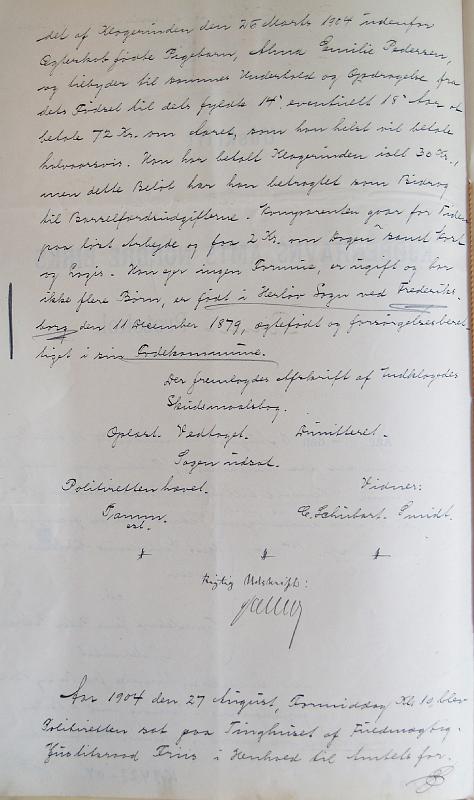 det af Klagerinden den 25 Marts 1904 udenfor
Ægteskab fødte Pigebarn, Alma Emilie Pedersen,
og tilbyder til sammes Underhold og Opdragelse fra
dets Fødsel til dets fyldte 14, eventuelt 18 Aar at
betale 72 Kr. om Aaret, som han helst vil betale
halvaarsvis. Han har betalt Klagerinden ialt 30 Kr.,
men dette Beløb har han betragtet som Bidrag
til Barselfærdsudgifterne. Komparenten gaar for Tiden
paa løst Arbejde og faar 2 Kr. om Dagen samt Kost
og Logis. Han ejer ingen Formue, er ugift og har
ikke flere Børn, er født i Herløv Sogn ved Frederiks-
borg den 11 December 1879, ægtefødt og forsørgelsesberet-
tiget i sin Fødekommune.
Der fremlagdes Afskrift af Indklagedes
Skudsmaalsbog.
Oplæst. Vedtaget. Dimitteret.
Sagen udsat.
Politiretten hævet.
Vidner:
cst.
C. Schubart. Smidt.
Rigtig Udskrift:
Aar 1904 den 27 August, Formiddag Kl 10, blev
Politiretten sat paa Tinghuset af Fuldmægtig
Friis i Henhold til Amtets for.